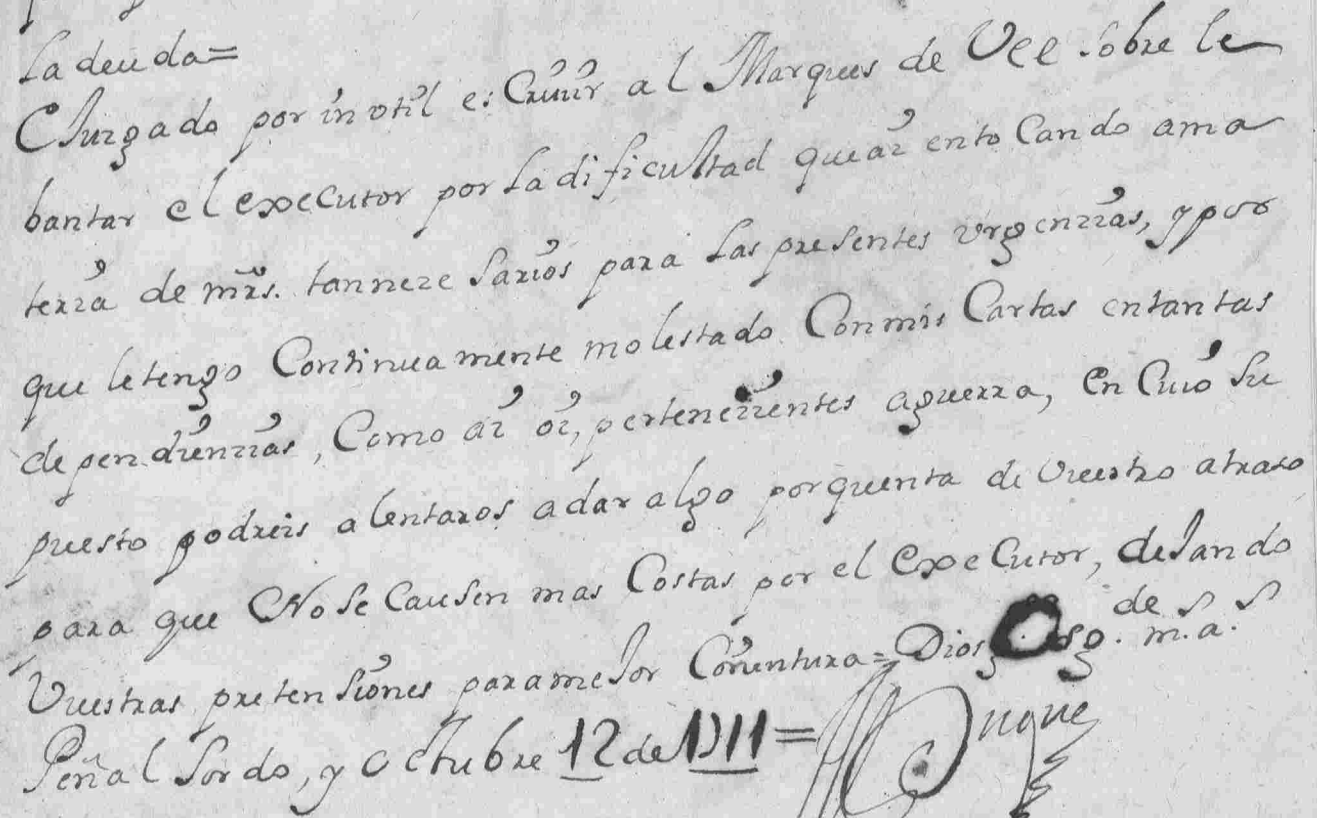 La deuda=
CJuzgado por inutil escriuir al Marques de Vee sobre le
bantar el executor por La dificultad que ai en tocando a ma
teria de mrs. tan nezesarios para Las presentes vrgenzias, y por
que le tengo Continuamente molestado Con mis Cartas en tantas
dependienzias, Como ai oi, pertenezientes a guerra, En Cuio Su
puesto podreis alentaros a dar algo por quenta de Vuestro atraso
para que No Se Causen mas Costas por el Executor, deJando
Vuestras pretensiones para meJor Coiuntura = Dios g. m. a. de
Peñal Sordo, y Octubre 12 de 1711 = Duque